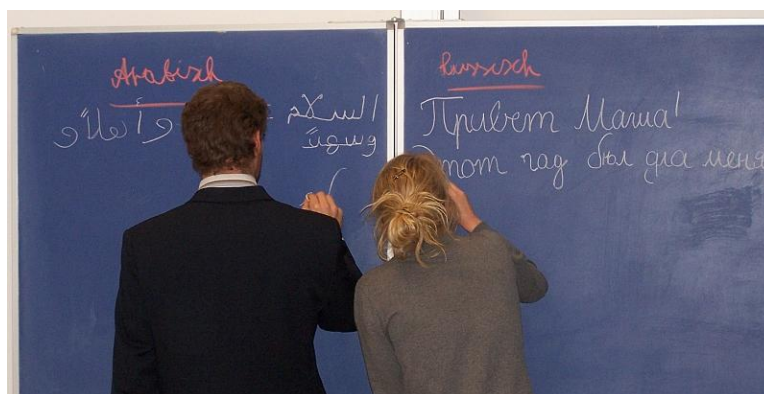 Arabisch
السلام وأهلاً و
وسهلاً
Russisch
Привет Маша!
Этот год был для меня